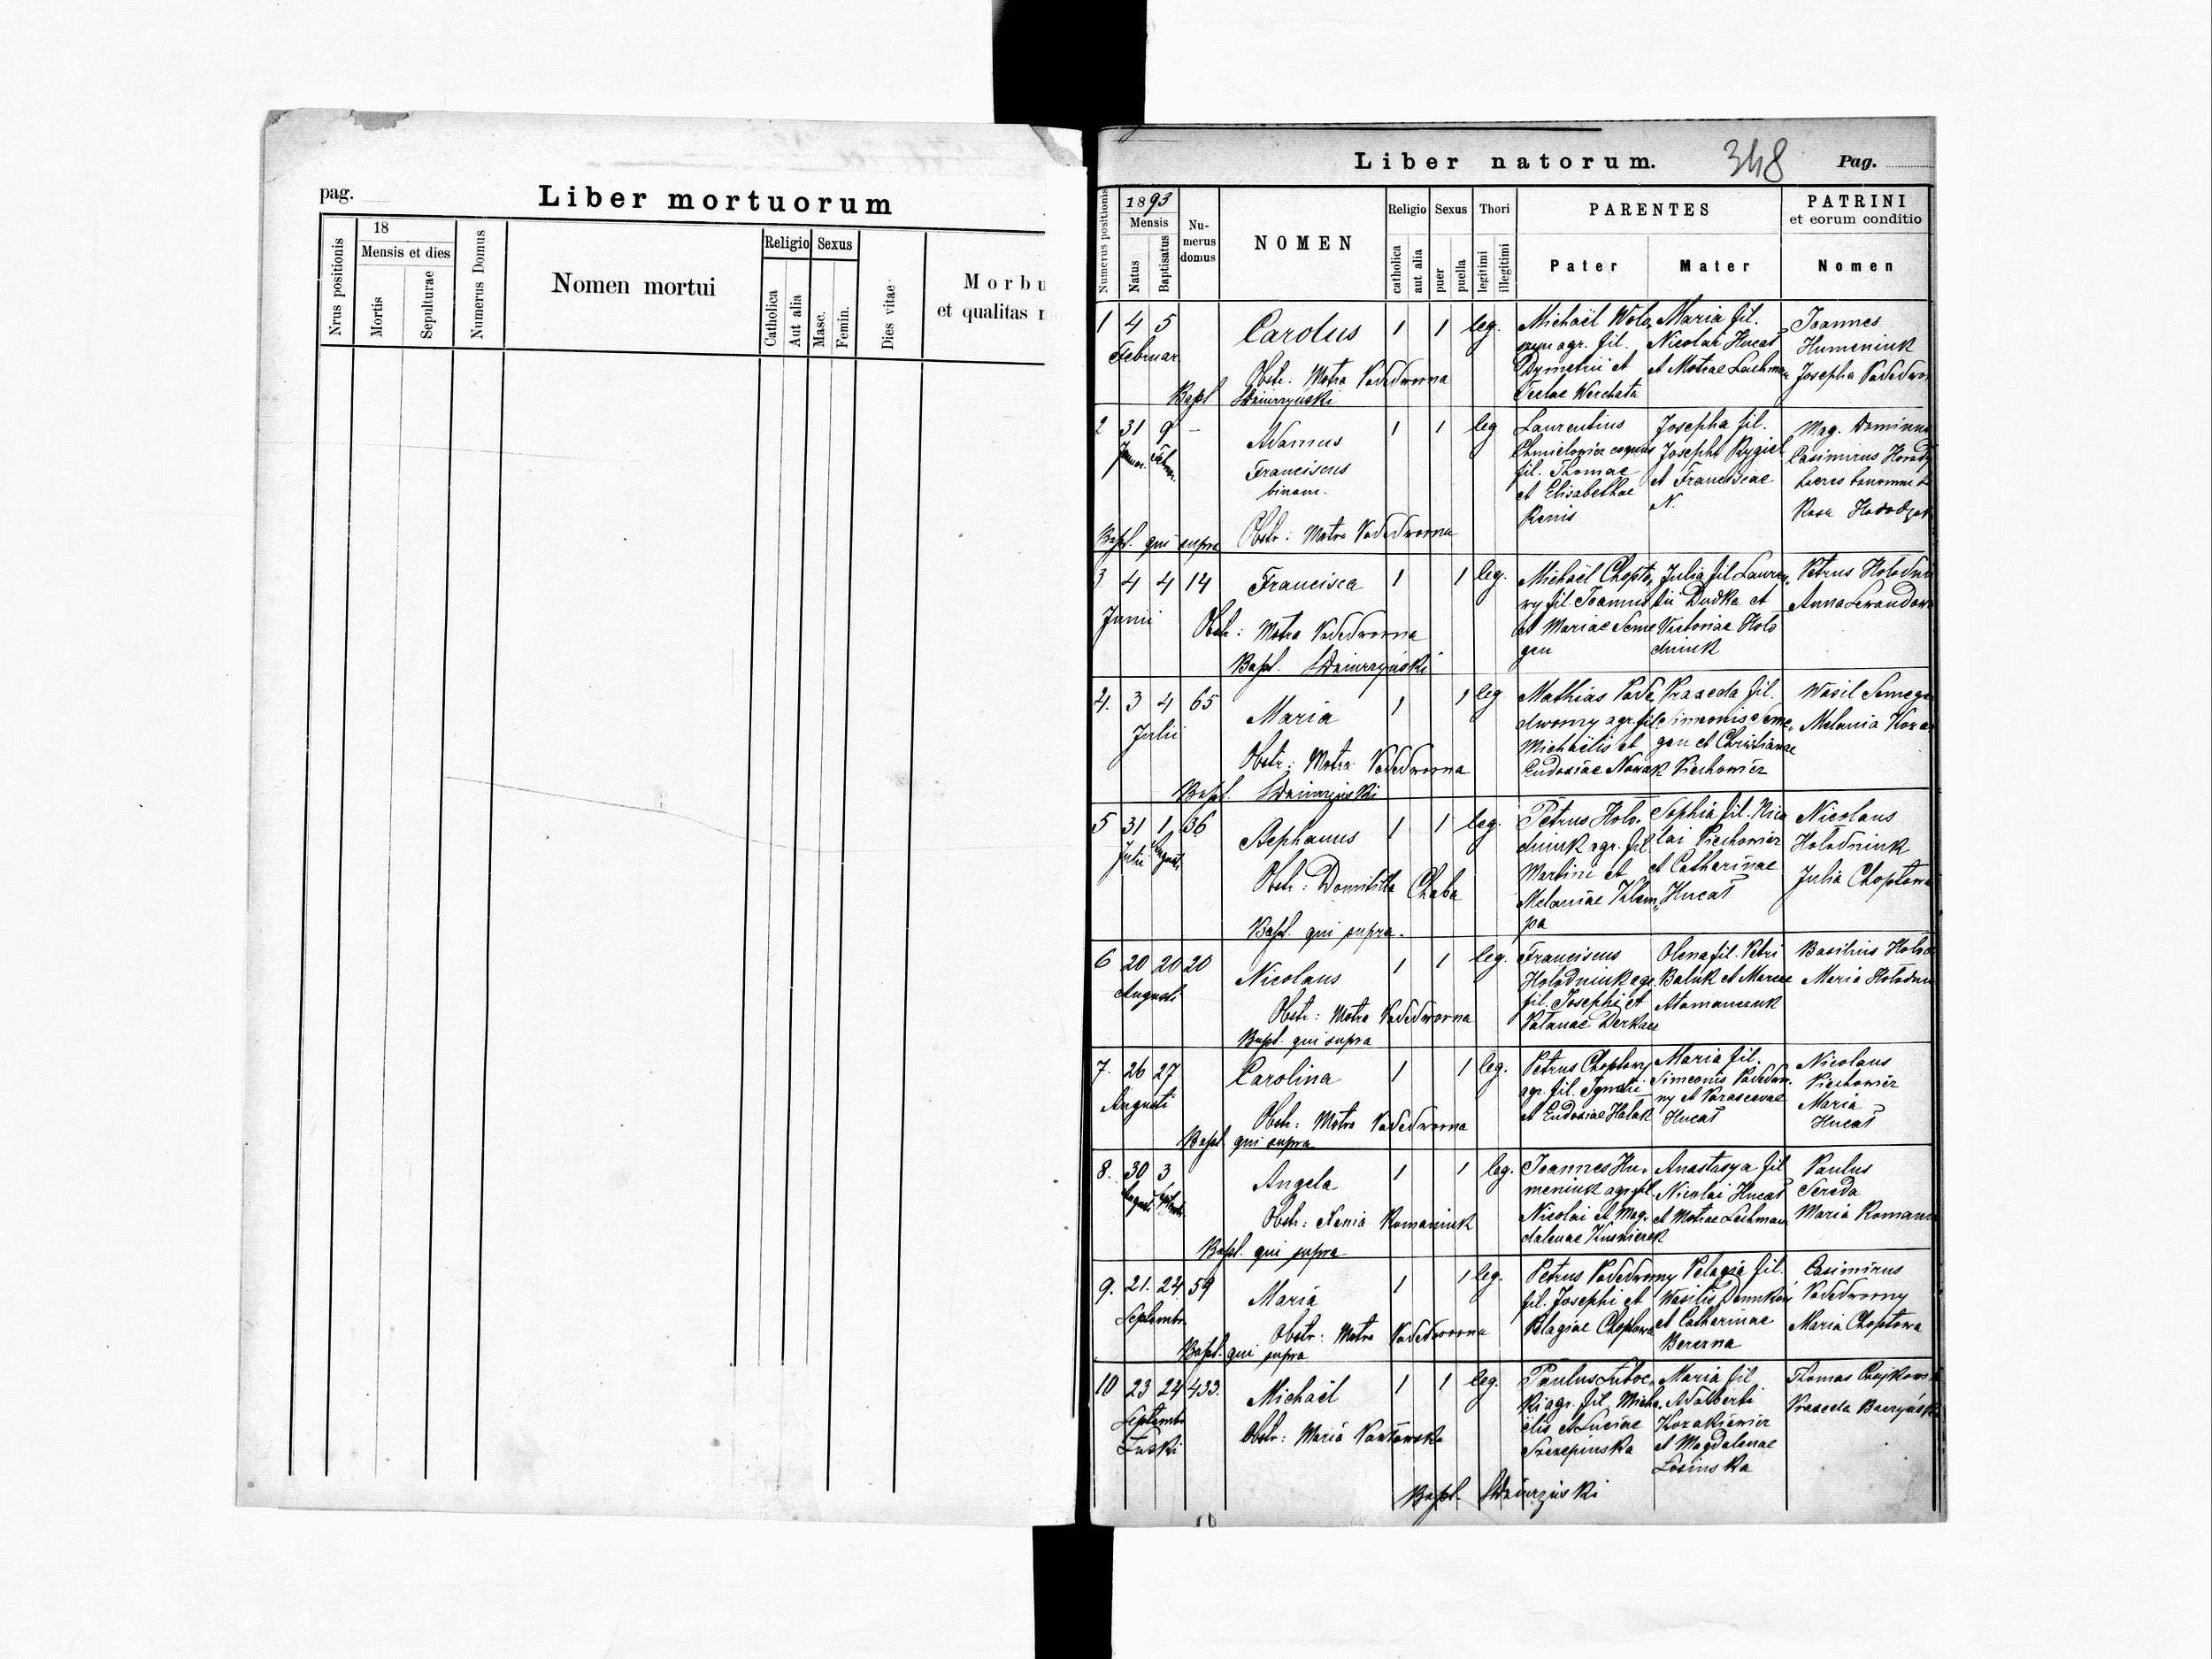 pag.
Liber mortuorum
Nrus positionis
18
Mensis et dies
Mortis
Sepulturae
Numerus Domus
Nomen mortui
Religio
Catholica
Aut alia
Sexus
Masc.
Femin.
Dies vitae
Morbu
et qualitas
Liber natorum.
348
Pag.
Numerus positionis
1893
Mensis
Natus
Baptisatus
Nu-
merus
domus
NOMEN
Religio
catholica
aut alia
Sexus
puer
puella
Thori
legitimi
illegitimi
PARENTES
Pater
Mater
PATRINI
et eorum conditio
Nomen
1 4 5
Februar.
Carolus
1 1 leg.
Obstr. Motra Podedworna
Bapt.
Michaël Woło„
szyn agr. fil.
Dymetrii et
Teclae Werchata
Maria fil.
Nicolai Hucał
et Motrae Lachman
Joannes
Humeniuk
Josepha Podedwor
2 31 9 -
Januar. Febru.
Adamus
Franciscus
binom.
1 1 leg
Bapt. qui supra
Obstr: Motra Podedworna
Laurentius
Chmielowicz
fil. Thomae
et Elisabethae
Renis
Josepha fil.
Josephi Rygiel
et Franciscae
N.
Mag. Dominus
Casimirus
Rosa
3 4 4 14
Junii
Francisca
1 1 leg.
Obstr: Motra Podedworna
Bapt.
Michaël Chopto„
wy fil. Joannis
et Mariae Seme
gen
Julia fil Lauren„
tii Dudka et
Victoriae Hoło
dniuk
Petrus Hołodniu
Anna Lewandow
4. 3 4 65
Julii
Maria
1 1 leg.
Obstr: Motra Podedworna
Bapt.
Mathias Pode„
dworny agr. fil
Michaëlis et
Eudosiae Nowak
Praxeda fil.
Simeonis Seme„
gen et Christianae
Piechowicz
Wasil Semegen
Melania
5 31 1 36
Julii Augusti
Stephanus
1 1 leg.
Obstr: Domitilla Chaba
Bapt. qui supra.
Petrus Hoło„
dniuk agr. fil
Martini et
Melaniae Klam„
pa
Sophia fil. Nico
lai Piechowicz
et Catharinae
Hucał
Nicolaus
Hołodniuk
Julia Choptowa
6 20 20 20
Augusti
Nicolaus
1 1 leg.
Obstr: Motra Podedworna
Bapt. qui supra
Franciscus
Hołodniuk agr.
fil. Josephi et
Olena fil. Petri
Baluk et Mariae
Atamanczuk
Basilius Hołod
Maria Hołodniu
7. 26 27
Augusti
Carolina
1 1 leg.
Obstr: Motra Podedworna
Bapt. qui supra
Petrus Choptowy
agr. fil. Ignatii
et Eudosiae Hałak
Maria fil.
Simeonis Podedwor„
ny et Parascevae
Hucał
Nicolaus
Piechowicz
Maria
Hucał
8. 30 3
Augusti Septembr.
Angela
1 1 leg.
Obstr: Xenia Romaniuk
Bapt. qui supra
Joannes Hu„
meniuk agr. fil.
Nicolai et Mag„
dalenae Kusnierek
Anastasya fil
Nicolai Hucał
et Motrae Lachman
Paulus
Sereda
Maria Romani
9. 21. 24 59
Septembr.
Maria
1 1 leg.
Obstr: Motra Podedworna
Bapt. qui supra
Petrus Podedworny
fil. Josephi et
Pelagiae Choptowa
Pelagia fil.
Wasilis
et Catharinae
Berezna
Casimirus
Podedworny
Maria Choptowa
10 23 24 433.
Septembr.
Michaël
1 1 leg.
Obstr: Maria
Bapt.
Paulus
ki agr. fil. Micha„
ëlis et Luciae
Szczepinska
Maria fil.
Adalberti
Kozakiewicz
et Magdalenae
Łosinska
Thomas
Praxeda